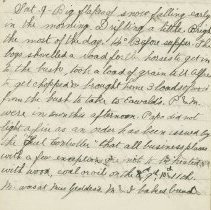 Sat 9 Big flakes of snow falling early
in the morning. Drifting a little. Bright
the most of the day. 14° Before supper. The
boys shovelled a road for the horses to get in
to the bush, took a load of grain to St
to get chopped & brought home 3 loads of wood
from the bush to take to Oswald's. P. & M.
were in town this afternoon. Papa did not
light a fire as an order has been issued by
the Fuel Controller "that all business places
with a few exceptions are not to B heated
with wood, coal or oil on the 9th 10th & 11th.
M. was at Mrs M. & I baked bread